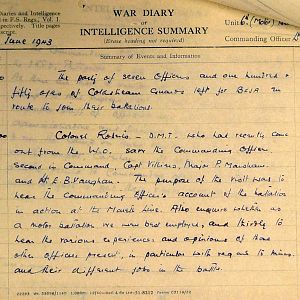 Diaries and Intelligence
d in F.S. Regs., Vol. I.
WAR DIARY
OF
INTELLIGENCE SUMMARY
(Erase heading not required)
Unit 6th (Mot)
Commanding Officer
June 1943
Summary of Events and Information
The party of seven Officers and one hundred &
fifty eight of Coldstream Guards left for BCJA en
route to join their Battalions.
Colonel Roberts - D.M.T. who had recently come
out from the W.O. saw the Commanding Officer
Second in Command, Capt Villiers, Major P. Marsham
and E.B. Vaughan. The purpose of the visit was to
hear the Commanding Officer's account of the battalion
in action at the Mareth Line. Also enquire whether as
a motor battalion we were best employed, and thirdly to
hear the various experiences and opinions of those
other officers present, in particular with regard to mines
and their different jobs in the battle.